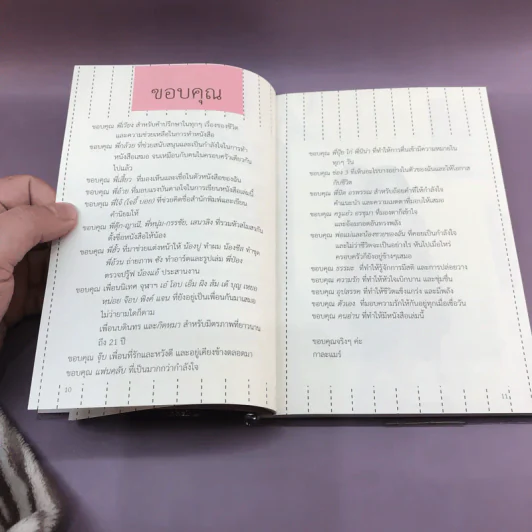 ขอบคุณ
ขอบคุณ พี่เวียง สำหรับคำปรึกษาในทุกๆ เรื่องของชีวิต
และความช่วยเหลือในการทำหนังสือ
ขอบคุณ พี่กล้วย ที่ช่วยสนับสนุนและเป็นกำลังใจในการทำ
หนังสือเสมอ จนเหมือนกับคนในครอบครัวเดียวกัน
ไปแล้ว
ขอบคุณ พี่เสี้ยว ที่มองเห็นและเชื่อในตัวหนังสือของฉัน
ขอบคุณ พี่อ้วย ที่มอบแรงบันดาลใจในการเขียนหนังสือเล่มนี้
ขอบคุณ พี่โจ้ ที่ช่วยคิดชื่อสำนักพิมพ์และเขียน
คำนิยมให้
ขอบคุณ พี่ตุ๊ก-ญาณี, พี่หนุ่ม-กรรชัย, เสนาลิง ที่รวมหัวสุมเสนกัน
ตั้งชื่อหนังสือให้น้อง
ขอบคุณ พี่อั๋ว ที่มาช่วยแต่งหน้าให้ น้องปู ทำผม น้องซีด ค้าชุด
พี่อ้วน ถ่ายภาพ ซัง ทำอาร์ตและรูปเล่ม พี่ป๋อง
ตรวจปรู๊ฟ น้องเมย์ ประสานงาน
ขอบคุณ เพื่อนนิเทศ จุฬาฯ เอ๋ โอบ เอ็ม ผึ้ง ส้ม เต้ บุญ เหมย
หน่อย จ๊อบ พิงค์ แอน ที่ยังอยู่เป็นเพื่อนกันมาเสมอ
ไม่ว่ายามใดก็ตาม
เพื่อนบดินทร และภัคจงมา สำหรับมิตรภาพที่ยาวนาน
ถึง 21 ปี
ขอบคุณ จุ้ย เพื่อนที่รักและหวังดี และอยู่เคียงข้างตลอดมา
ขอบคุณ แฟนคลับ ที่เป็นมากกว่ากำลังใจ
10
ขอบคุณ พี่ฉุ๊ก โก๋ พี่นีน่า ที่ทำให้การตื่นเช้ามีความหมายใน
ทุกๆ วัน
ขอบคุณ ช่อง 3 ที่เห็นอะไรบางอย่างในตัวของฉันและให้โอกาส
กับชีวิต
ขอบคุณ พี่ฉอด สำหรับถ้อยคำที่ให้กำลังใจ
คำแนะนำ และความเมตตาที่มอบให้เสมอ
ขอบคุณ ครูแอ๋ว อรชุมา ที่มองตาก็เข้าใจ
และเตือนสติกันเสมอ
ขอบคุณ พ่อแม่และน้องชายของฉัน ที่คอยเป็นกำลังใจ
และไม่ว่าชีวิตจะเป็นอย่างไร หันไปเมื่อไหร่
ครอบครัวก็ยังอยู่ข้างๆเสมอ
ขอบคุณ ธรรมะ ที่ทำให้รู้จักการมีสติ และการปล่อยวาง
ขอบคุณ ความรัก ที่ทำให้หัวใจเบิกบาน และชุ่มชื่น
ขอบคุณ อุปสรรค ที่ทำให้ชีวิตแข็งแกร่ง และมีพลัง
ขอบคุณ ตัวเอง ที่มอบความรักให้กันอยู่ทุกเมื่อเชื่อวัน
ขอบคุณ คนอ่าน ที่ทำให้มีหนังสือเล่มนี้
ขอบคุณจริงๆ ค่ะ
กาละแมร์
11